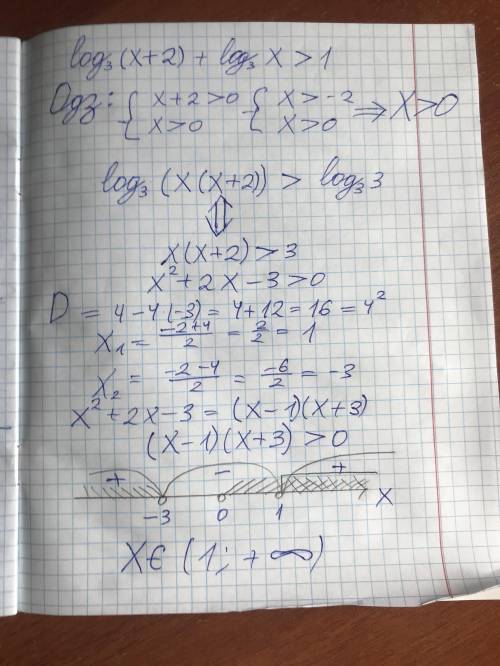 log₃(x+2) + log₃ x > 1
Одз: { x+2>0 { x>-2 ⇒ x>0
x>0 x>0
log₃(x(x+2)) > log₃3
⇕
x(x+2)>3
x²+2x-3>0
D = 4-4·(-3) = 4+12 = 16 = 4²
x₁ = (-2+4)/2 = 2/2 = 1
x₂ = (-2-4)/2 = -6/2 = -3
x²+2x-3 = (x-1)(x+3)
(x-1)(x+3)>0
+ - +
-3 0 1 x
x∈(1; +∞)